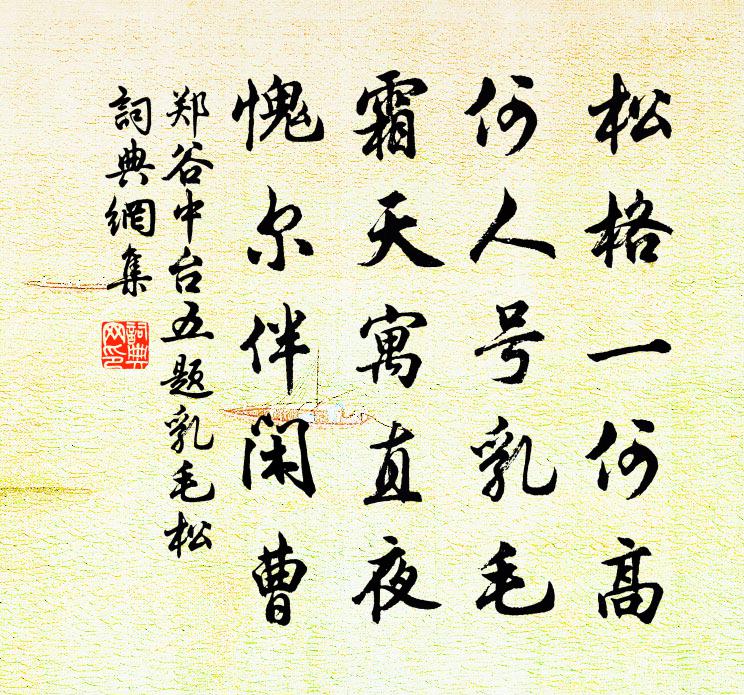 松格一何高
何人号乳毛
霜天寓直夜
愧尔伴闲曹
郑谷中台五题乳毛松
詞典網集
詞典
网印